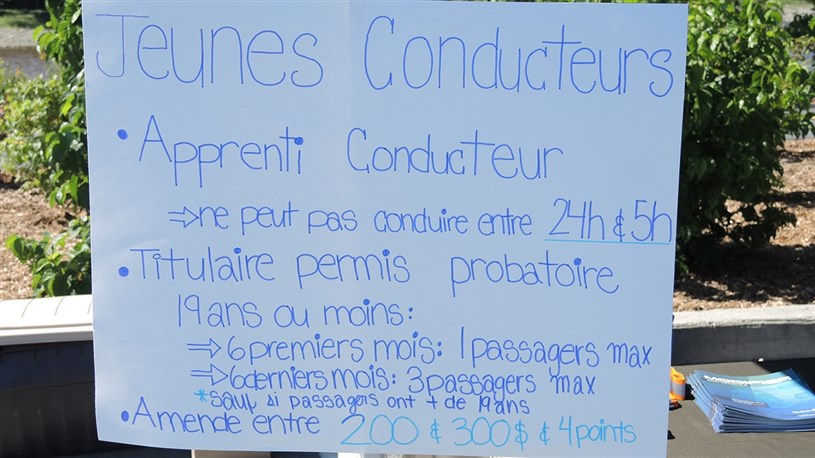 Jeunes Conducteurs
• Apprenti Conducteur
⇒ ne peut pas conduire entre 24h & 5h
• Titulaire permis probatoire
19 ans ou moins:
⇒ 6 premiers mois: 1 passagers max
⇒ 6 derniers mois: 3 passagers max
*sauf si passagers ont + de 19 ans
• Amende entre 200 & 300$ & 4 points